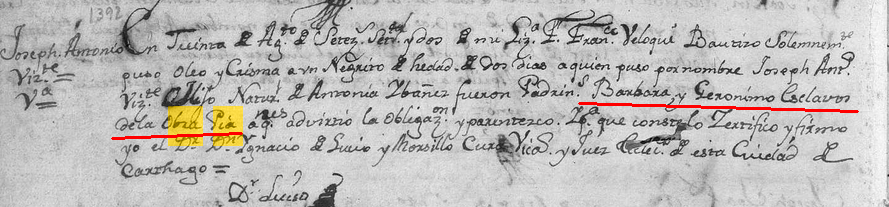 1392
Joseph Antonio
Viz.te =
V.a =
En Treinta de Ag.to de Setez. Set.ta y dos de mi Liz.a F. Fran.co Veloqui Bautizo Solemnem.te
puso Oleo y Crisma a un Negrito de hedad de dos dias a quien puso por nombre Joseph Ant.o
Viz.te Hijo Natur.l de Antonia Ybañez fueron Padrin.s Barbara, y Geronimo Esclavos
dela Obra Pia a q.nes advirtio la Obligaz.on y parentezco. Y p.a que conste lo Zertifico y firmo
yo el D.r D.n Ygnacio de y Morsillo Cura Vica.o y Juez Eclec.o de esta Ciudad de
Carthago =
D.r